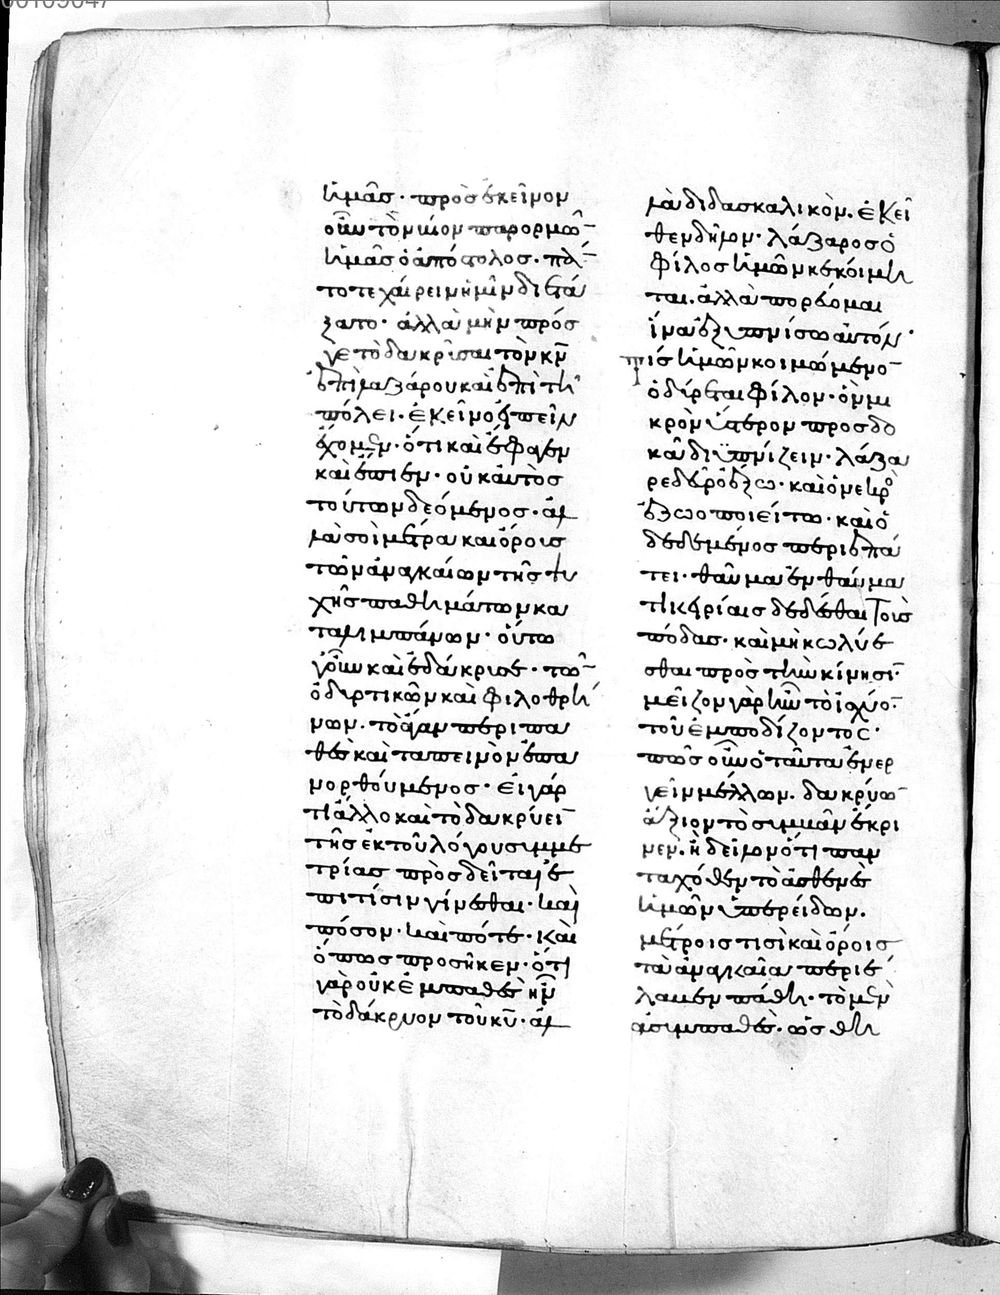 ἡμᾶς · πρὸς ἐκεῖνον
οὖν τὸν νόμον παρορμῶν
ἡμᾶς ὁ ἀπόστολος · πάν
τοτε χαίρειν ἡμῖν διετά
ξατο · ἀλλὰ μὴν πρός
γε τὸ δακρῦσαι τὸν κν̄
ἐπὶ λαζάρου καὶ ἐπὶ τῆ
πόλει · ἐκεῖνο εἰπεῖν
ἔχομεν · ὅτι καὶ ἔφαγεν
καὶ ἔπιεν · οὐκ αὐτὸς
τούτων δεόμενος · ἀλ
λὰ σοὶ μέτρα καὶ ὅρους
τῶν ἀναγκαίων τῆς ψυ
χῆς παθημάτων κα
ταλιμπάνων · οὕτω
γοῦν καὶ ἐδάκρυσε · τῶν
ὀδυρτικῶν καὶ φιλοθρή
νων · τὸ ἄγαν περιπα
θὲς καὶ ταπεινὸν ἐπα
νορθούμενος · εἰ γάρ
τι ἄλλο καὶ τὸ δακρύειν
τῆς ἐκ τοῦ λόγου συμμε
τρίας προσδεῖται · ἐ
πὶ τίσιν γίνεσθαι · καὶ
πόσον · καὶ πότε · καὶ
ὅπως προσῆκεν · ὅτι
γὰρ οὐκ ἐμπαθὲς ἦν
τὸ δάκρυον τοῦ κῡ · ἀλ
λὰ διδασκαλικὸν · ἐκεῖ
θεν δῆλον · λάζαρος ὁ
φίλος ἡμῶν κεκοίμη
ται · ἀλλὰ πορεύομαι
ἵνα ἐξυπνίσω αὐτόν ·
τίς ἡμῶν κοιμώμενον
ὀδύρεται φίλον · ὃν μι
κρὸν ὕστερον προσδο
κᾶ διϋπνίζειν · λάζα
ρε δεῦρο ἔξω · καὶ ὁ νεκρὸς
ἐζωοποιεῖτο · καὶ ὁ
δεδεμένος περιεπά
τει · θαῦμα ἐν θαύματι
κειρίαις δεδέσθαι τοὺς
πόδας · καὶ μὴ κωλύε
σθαι πρὸς τὴν κίνησιν
μεῖζον γὰρ ἦν τὸ ἰσχύον
τοῦ ἐμποδίζοντος ·
πῶς οὖν ὁ ταῦτα ἐνερ
γεῖν μέλλων · δακρύων
ἄξιον τὸ συμβὰν ἔκρι
νεν · ἢ δῆλον ὅτι παν
ταχόθεν τὸ ἀσθενὲς
ἡμῶν ὑπερείδων ·
μέτροις τισὶ καὶ ὅροις
τὰ ἀναγκαῖα περιέ
λαβεν πάθη · τὸ μὲν
ἀσυμπαθὲς · ὡς θη